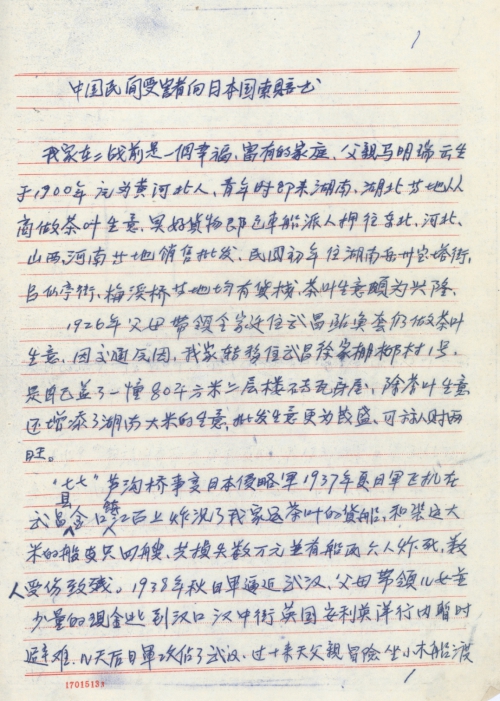 1
中国民间受害者向日本国索赔书
我家在二战前是一個幸福、富有的家庭、父親马明瑞云生
于1900年 汉为黄河北人、青年时即来湖南、湖北廿地从
商做茶叶生意、買好貨物即包車船派人押往东北、河北、
山西、河南廿地销售批发、民国初年住湖南岳州宝塔街、
吕仙亭街、梅溪桥廿地均有货栈、茶叶生意頗为兴隆、
1926年父母带领全家迁住武昌 仍做茶叶
生意、因交通反因、我家转移住武昌徐家棚柳村1号、
是自己盖了一憧80平方米二层楼 瓦房屋、除茶叶生意
还增添了湖南大米的生意、批发生意更为茂盛、可称人财两
旺。
"七七"芦沟桥事变日本侵略軍1937年夏日軍飞机在
武昌县金口镇江面上炸沉了我家运茶叶的货船、和装运大
米的船隻只四艘、共損失数万元並有船而六人炸死、数
人受伤致残。1938年秋日軍逼近武汉、父母带领儿女並
少量的現金逃到汉口汉中街英国安利英洋行内暂时
避难、几天后日軍攻佔了武汉、过十来天父親冒险坐小木船渡
1701513
1